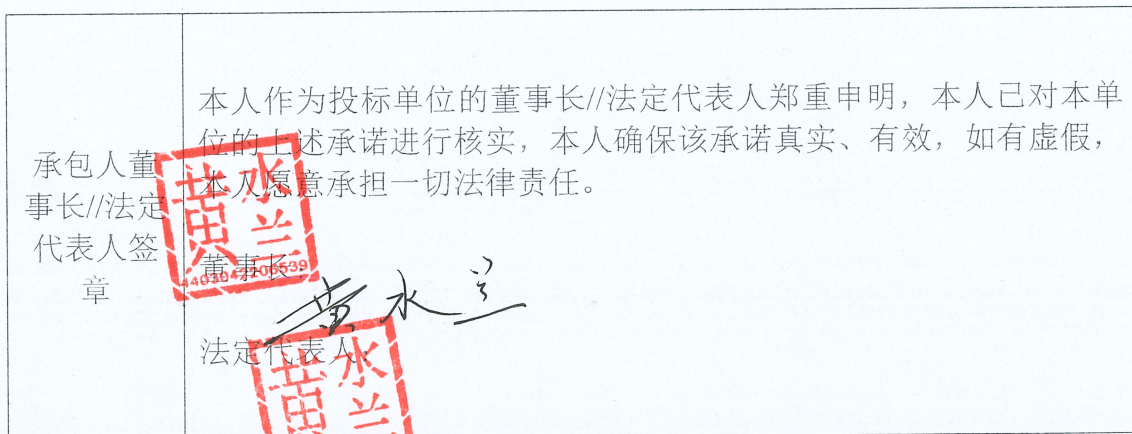 承包人董
事长//法定
代表人签
章
本人作为投标单位的董事长//法定代表人郑重申明，本人已对本单
位的上述承诺进行核实，本人确保该承诺真实、有效，如有虚假，
本人愿意承担一切法律责任。
董事长：
黄水兰
法定代表人：
黄水兰
4403042206539
黄水兰